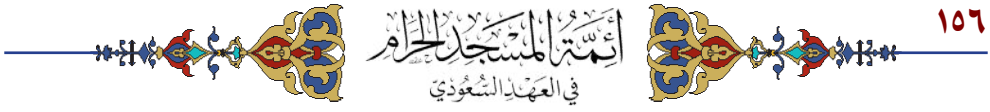 ١٥٦
أَئِمَّةُ الْمَسْجِدِ الْحَرَامِ
فِي الْعَهْدِ السُّعُودِيّ